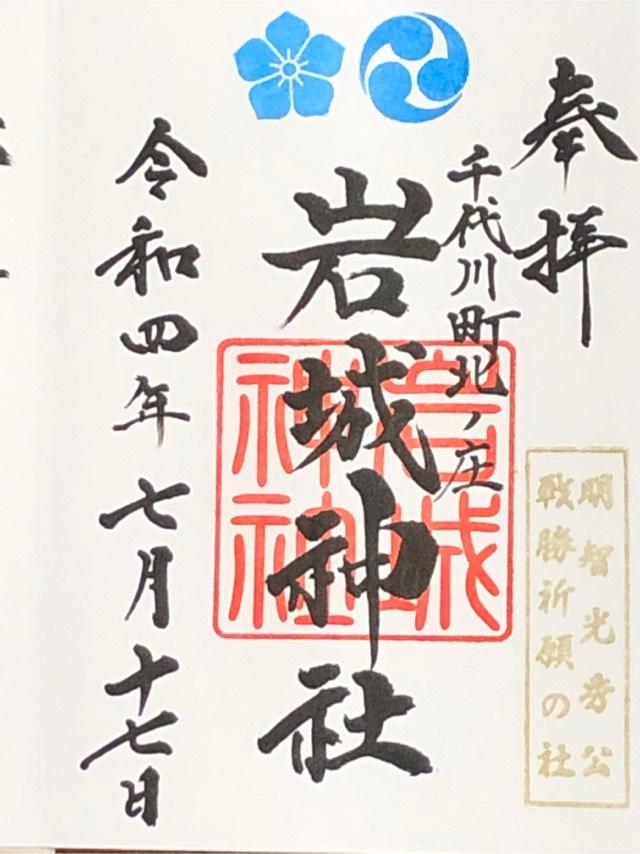 奉拝
千代川町北ノ庄
岩城神社
岩城神社
令和四年七月十七日
明智光秀公
戦勝祈願の社